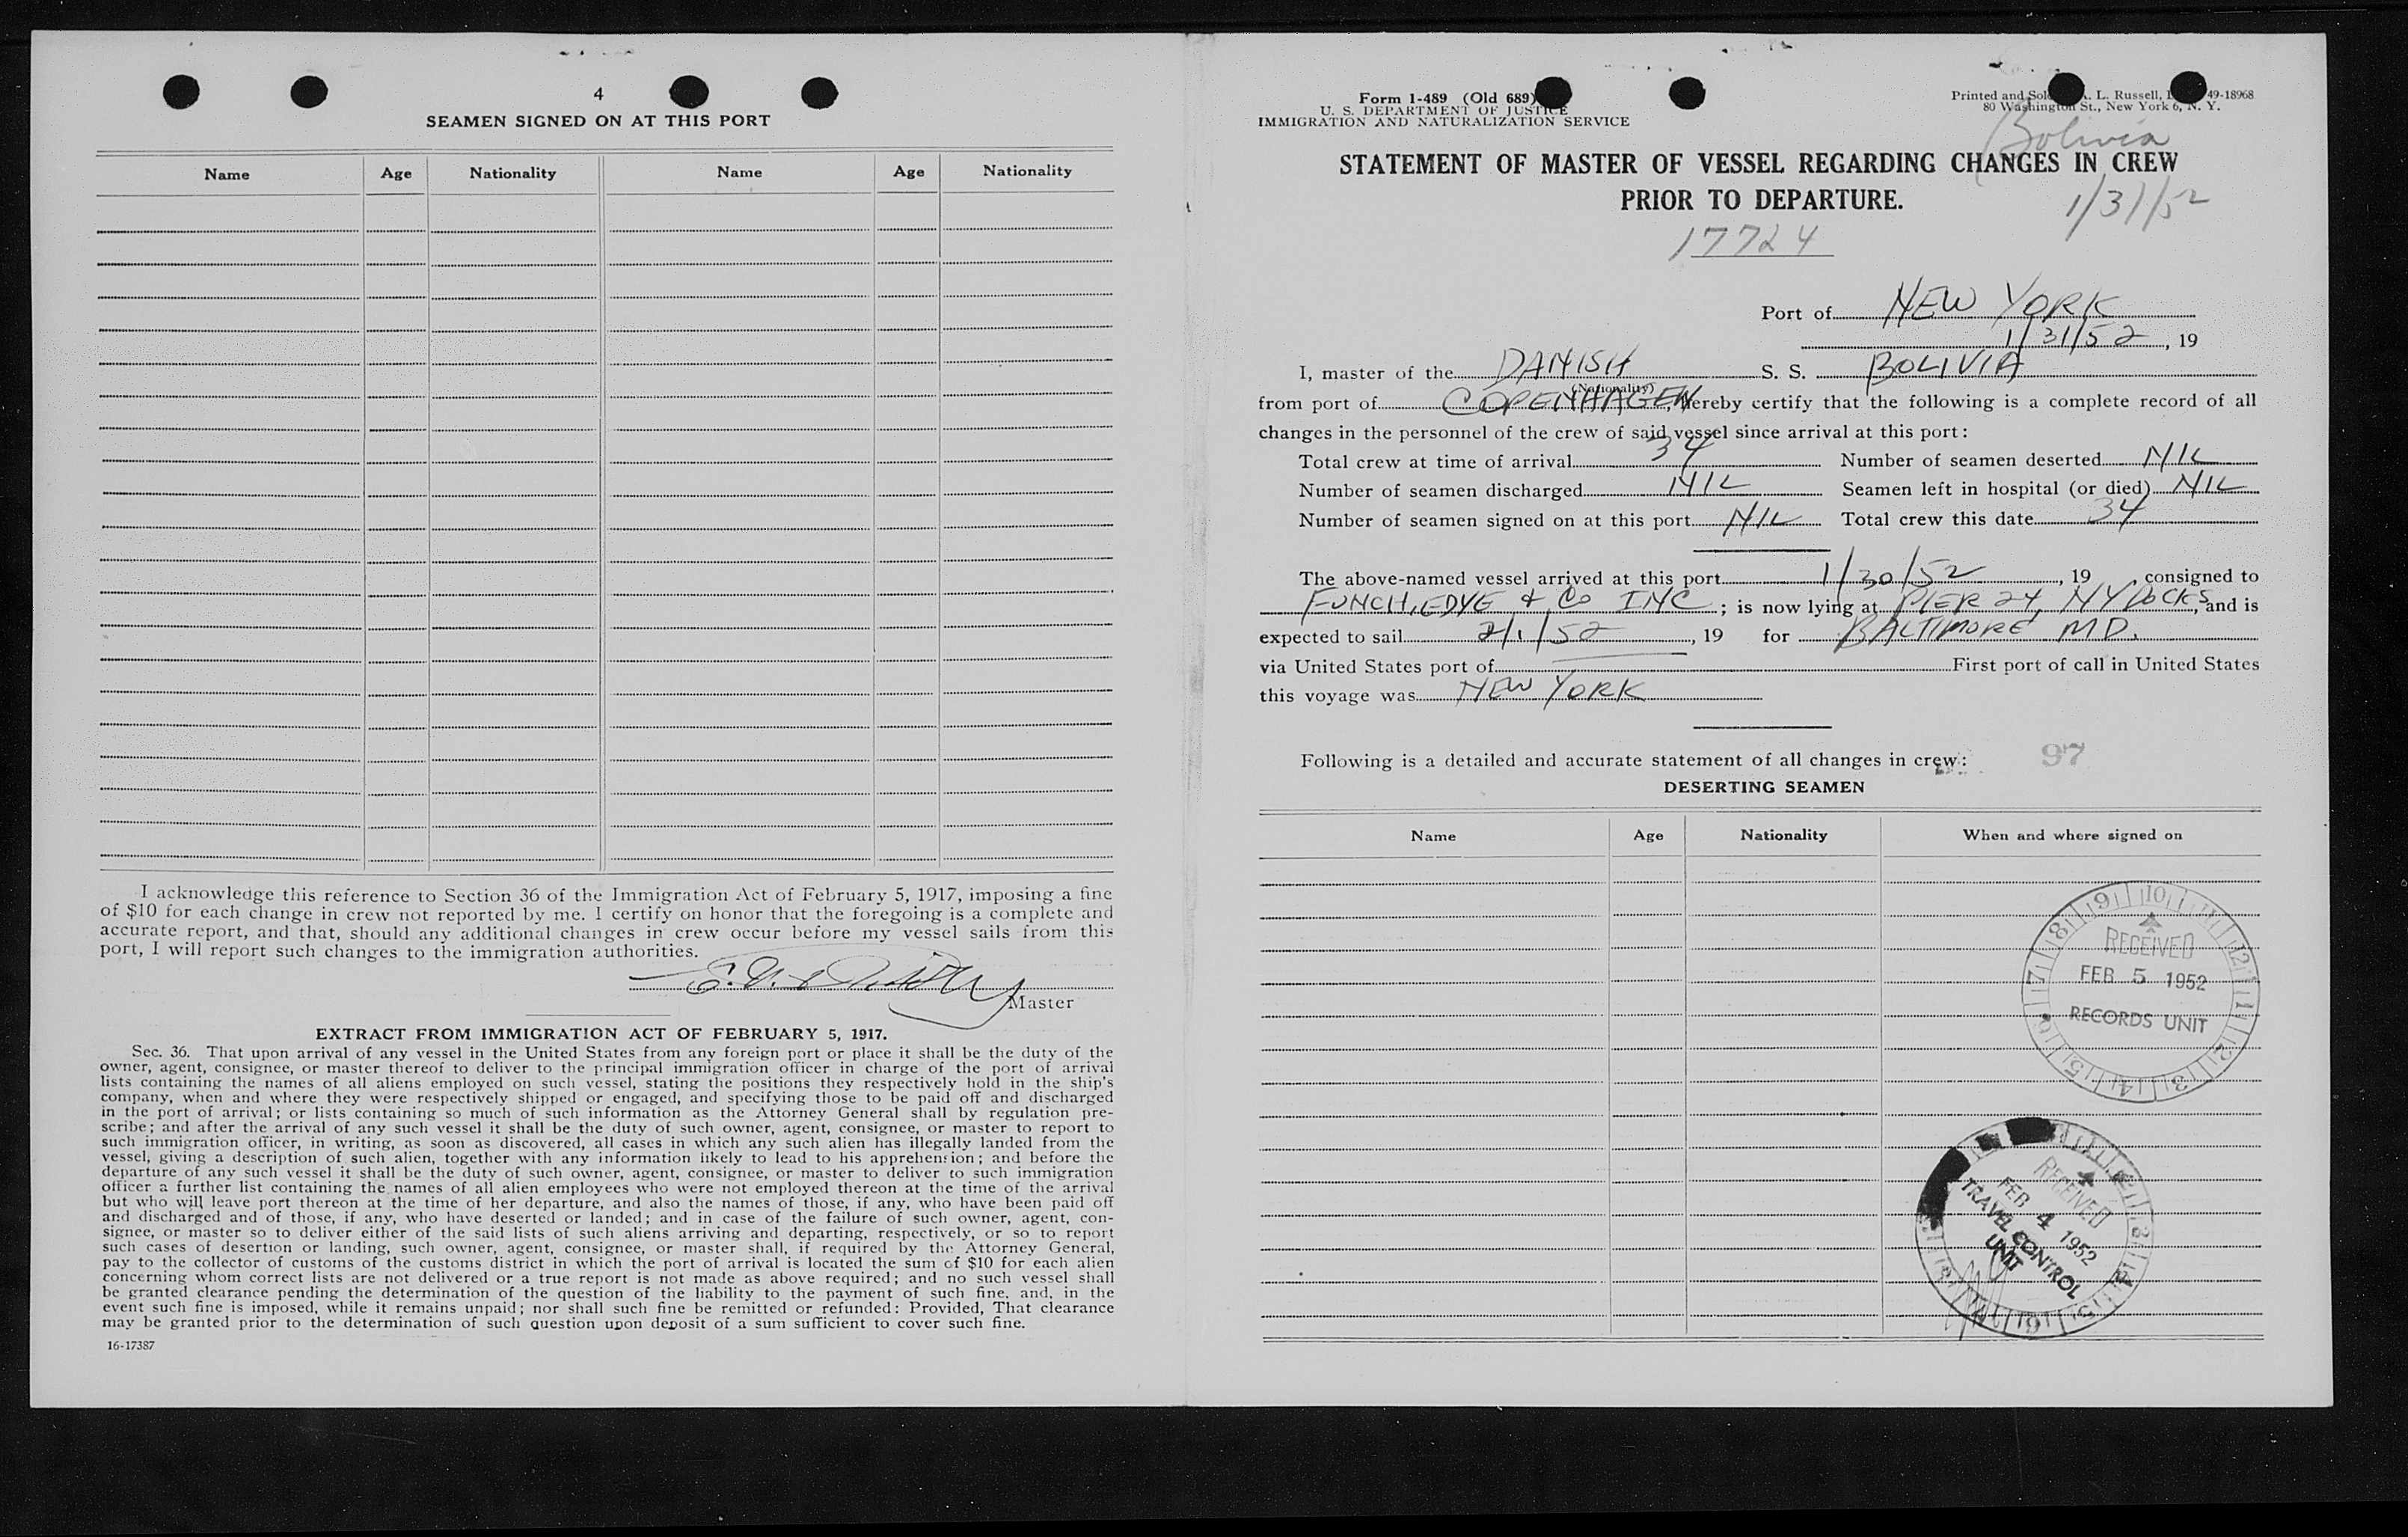 4
SEAMEN SIGNED ON AT THIS PORT
Name Age Nationality Name Age Nationality
I acknowledge this reference to Section 36 of the Immigration Act of February 5, 1917, imposing a fine
of $10 for each change in crew not reported by me. I certify on honor that the foregoing is a complete and
accurate report, and that, should any additional changes in crew occur before my vessel sails from this
port, I will report such changes to the immigration authorities.
Master
EXTRACT FROM IMMIGRATION ACT OF FEBRUARY 5, 1917.
Sec. 36. That upon arrival of any vessel in the United States from any foreign port or place it shall be the duty of the
owner, agent, consignee, or master thereof to deliver to the principal immigration officer in charge of the port of arrival
lists containing the names of all aliens employed on such vessel, stating the positions they respectively hold in the ship's
company, when and where they were respectively shipped or engaged, and specifying those to be paid off and discharged
in the port of arrival; or lists containing so much of such information as the Attorney General shall by regulation pre-
scribe; and after the arrival of any such vessel it shall be the duty of such owner, agent, consignee, or master to report to
such immigration officer, in writing, as soon as discovered, all cases in which any such alien has illegally landed from the
vessel, giving a description of such alien, together with any information likely to lead to his apprehension; and before the
departure of any such vessel it shall be the duty of such owner, agent, consignee, or master to deliver to such immigration
officer a further list containing the names of all alien employees who were not employed thereon at the time of the arrival
but who will leave port thereon at the time of her departure, and also the names of those, if any, who have been paid off
and discharged and of those, if any, who have deserted or landed; and in case of the failure of such owner, agent, con-
signee, or master so to deliver either of the said lists of such aliens arriving and departing, respectively, or so to report
such cases of desertion or landing, such owner, agent, consignee, or master shall, if required by the Attorney General,
pay to the collector of customs of the customs district in which the port of arrival is located the sum of $10 for each alien
concerning whom correct lists are not delivered or a true report is not made as above required; and no such vessel shall
be granted clearance pending the determination of the question of the liability to the payment of such fine, and, in the
event such fine is imposed, while it remains unpaid; nor shall such fine be remitted or refunded: Provided, That clearance
may be granted prior to the determination of such question upon deposit of a sum sufficient to cover such fine.
16-17387
Form 1-489 (Old 689)
U. S. DEPARTMENT OF JUSTICE
IMMIGRATION AND NATURALIZATION SERVICE
Printed and Sold L. Russell, 49-18968
80 Washington St., New York 6, N. Y.
Bolivia
STATEMENT OF MASTER OF VESSEL REGARDING CHANGES IN CREW
PRIOR TO DEPARTURE.
1/31/52
17724
Port of NEW YORK
1/31/52, 19
I, master of the DANISH S. S. BOLIVIA
(Nationality)
from port of COPENHAGEN, hereby certify that the following is a complete record of all
changes in the personnel of the crew of said vessel since arrival at this port:
Total crew at time of arrival 34 Number of seamen deserted NIL
Number of seamen discharged NIL Seamen left in hospital (or died) NIL
Number of seamen signed on at this port NIL Total crew this date 34
The above-named vessel arrived at this port 1/30/52, 19 , consigned to
FUNCH, EDYE & Co INC; is now lying at PIER 24, NY DOCKS, and is
expected to sail 2/1/52, 19 for BALTIMORE MD.
via United States port of First port of call in United States
this voyage was NEW YORK
Following is a detailed and accurate statement of all changes in crew: 97
DESERTING SEAMEN
Name Age Nationality When and where signed on
RECEIVED
FEB 5 1952
RECORDS UNIT
RECEIVED
FEB 4 1952
TRAVEL CONTROL
UNIT